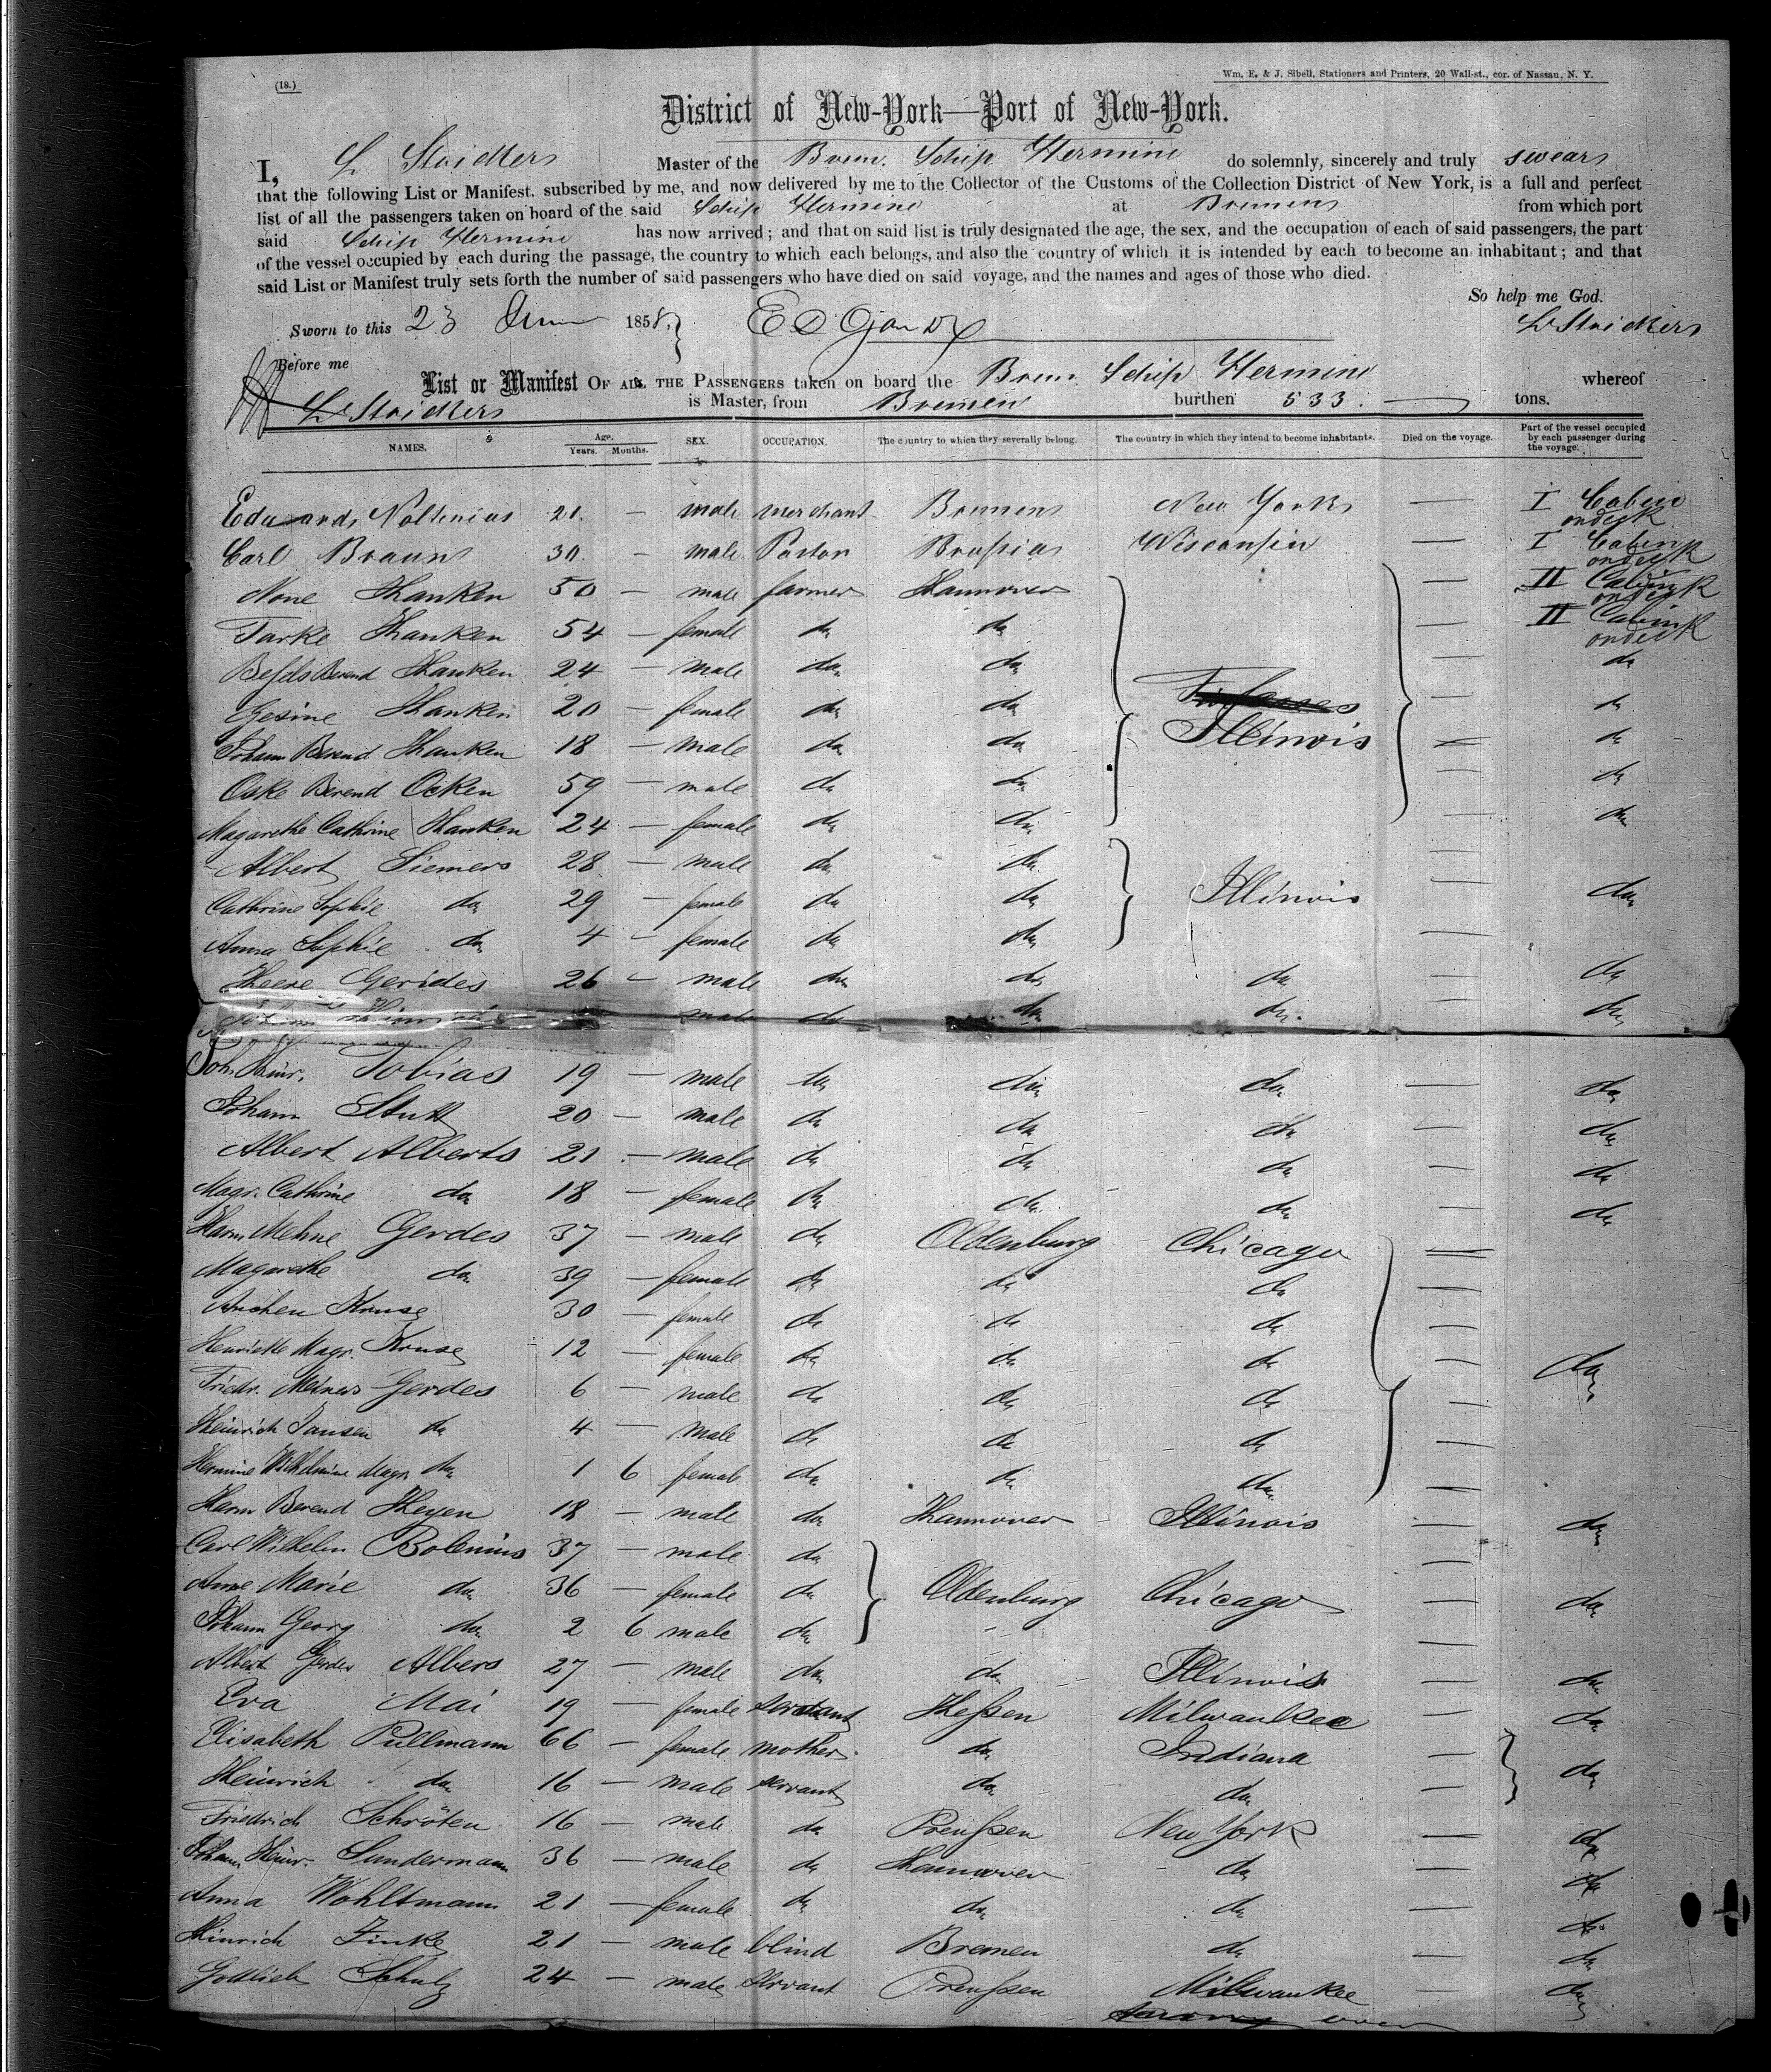 (18.)
Wm. E. & J. Sibell, Stationers and Printers, 20 Wall-st., cor. of Nassau, N. Y.
District of New-York—Port of New-York.
I, Master of the Brem. Schip Hermine do solemnly, sincerely and truly swear
that the following List or Manifest, subscribed by me, and now delivered by me to the Collector of the Customs of the Collection District of New York, is a full and perfect
list of all the passengers taken on board of the said Schip Hermine at Bremen from which port
said Schip Hermine has now arrived; and that on said list is truly designated the age, the sex, and the occupation of each of said passengers, the part
of the vessel occupied by each during the passage, the country to which each belongs, and also the country of which it is intended by each to become an inhabitant; and that
said List or Manifest truly sets forth the number of said passengers who have died on said voyage, and the names and ages of those who died.
So help me God.
Sworn to this 23 1858.
Before me
List or Manifest OF ALL THE PASSENGERS taken on board the Brem. Schip Hermine whereof
is Master, from Bremen burthen 533. tons.
NAMES. Age. Years. Months. SEX. OCCUPATION. The country to which they severally belong. The country in which they intend to become inhabitants. Died on the voyage. Part of the vessel occupied by each passenger during the voyage.
Eduard Noltenius 21. — male merchant Bremen New York — I Cabin ondeck
Carl Braun 30. — male Pastor Wisconsin — I Cabin ondeck
None Hanken 50 — male farmer Hannover — II Cabin ondeck
Tarke Hanken 54 — female do do — II Cabin ondeck
Berend Hanken 24 — male do do — do
Gesine Hanken 20 — female do do — do
Johann Berend Hanken 18 — male do do Illinois — do
Berend Ocken 59 — male do do — do
Magarethe Cathrine Hanken 24 — female do do — do
Albert Siemers 28 — male do do —
Cathrine Sophie do 29 — female do do Illinois — do
Anna Sophie do 4 — female do do —
Heere Gerides 26 — male do do do — do
Hinrich male do do do — do
Joh. Hinr. Tobias 19 — male do do do — do
Johann 20 — male do do do — do
Albert Alberts 21 — male do do do — do
Magr. Cathrine do 18 — female do do do — do
Harm Mehne Gerdes 37 — male do Oldenburg Chicago —
Magarethe do 39 — female do do do —
Anchen Kruse 30 — female do do do —
Henriette Magr. Kruse 12 — female do do do — do
Friedr. Meiners Gerdes 6 — male do do do —
Heinrich Jansen do 4 — male do do do —
Hermine Wilhelmine Magr. do 1 6 female do do do —
Harm Berend Heyen 18 — male do Hannover Illinois — do
Carl Wilhelm Bolenius 37 — male do —
Anne Marie do 36 — female do Oldenburg Chicago — do
Johann Georg do 2 6 male do —
Albert Gerdes Albers 27 — male do do Illinois — do
Eva Mai 19 — female servant Heßen Milwaukee — do
Elisabeth Pullmann 66 — female mother. do Indiana — do
Heinrich do 16 — male servant do do —
Friedrich Schröten 16 — male do Preußen New York — do
Johann Heinr. Sundermann 36 — male do Hannover do — do
Anna Wohltmann 21 — female do do do — do
Hinrich Finke 21 — male blind Bremen do — do
Gottlieb Schulz 24 — male servant Preußen Milwaukee — do
over